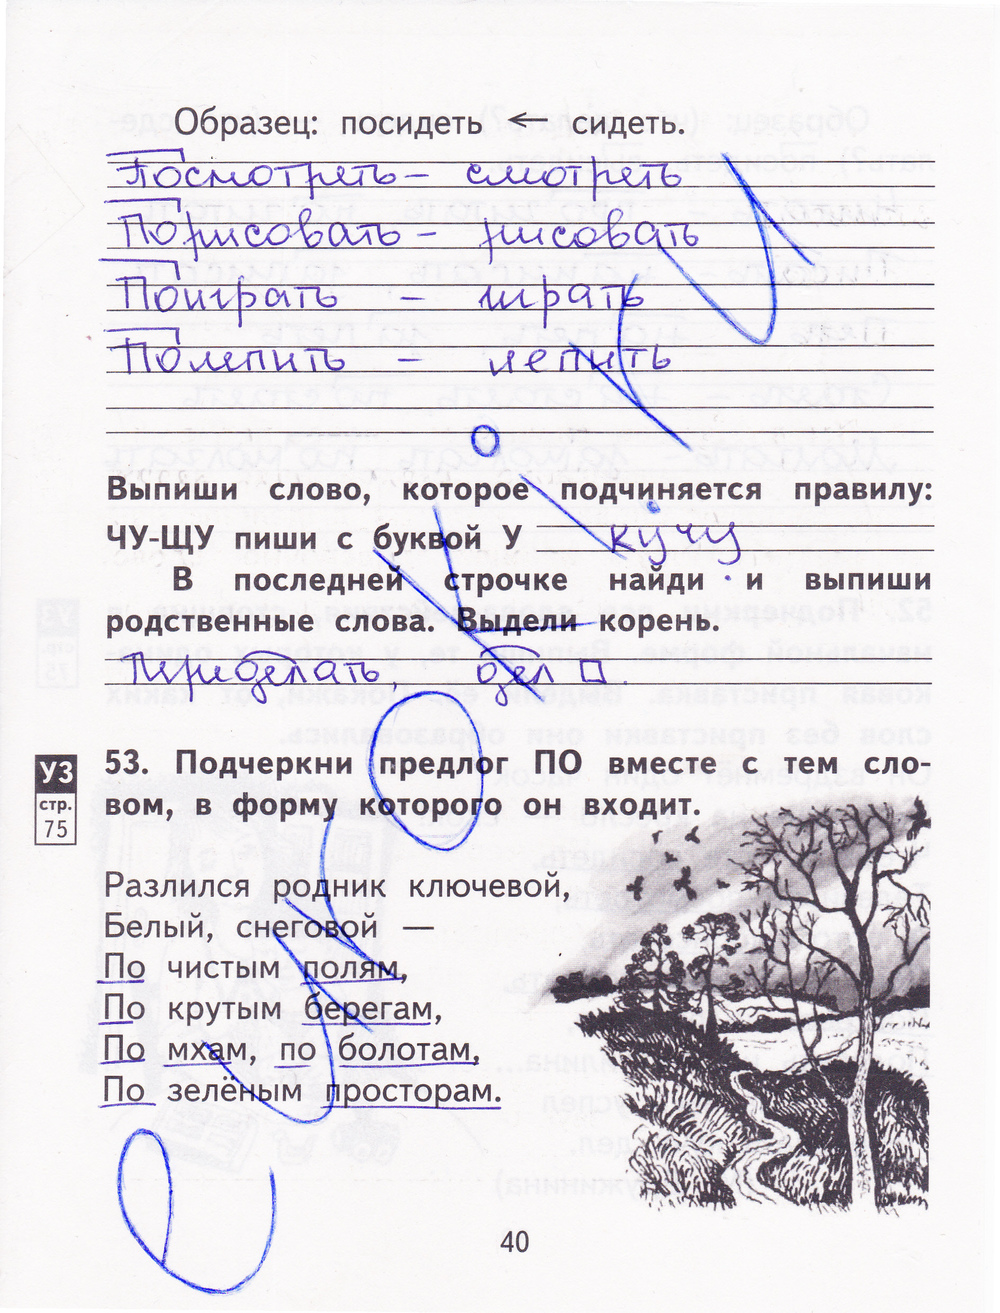 Образец: посидеть ← сидеть.
Посмотреть – смотреть
Порисовать – рисовать
Поиграть – играть
Полепить – лепить
Выпиши слово, которое подчиняется правилу:
ЧУ-ЩУ пиши с буквой У кучу
В последней строчке найди и выпиши
родственные слова. Выдели корень.
Переделать дел
53. Подчеркни предлог ПО вместе с тем сло-
вом, в форму которого он входит.
УЗ
стр.
75
Разлился родник ключевой,
Белый, снеговой —
По чистым полям,
По крутым берегам,
По мхам, по болотам,
По зелёным просторам.
40